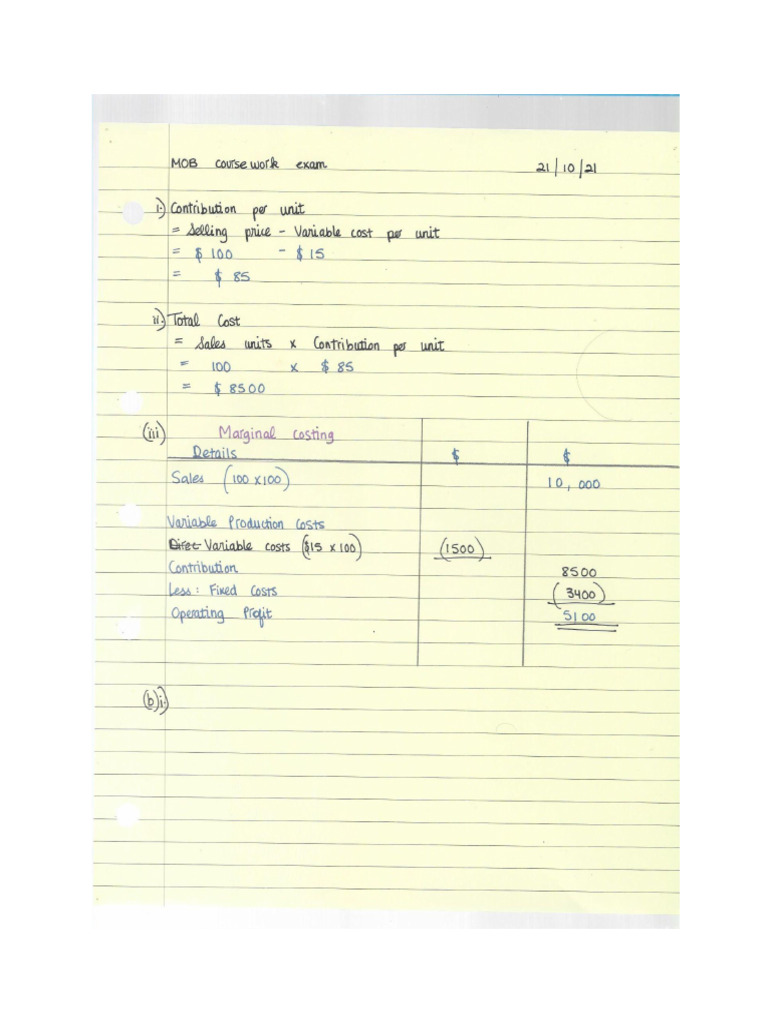 MOB coursework exam 21/10/21
i) Contribution per unit
= Selling price - Variable cost per unit
= $ 100 - $ 15
= $ 85
ii) Total Cost
= Sales units x Contribution per unit
= 100 x $ 85
= $ 8500
(iii) Marginal costing
Details $ $
Sales (100 x 100) 10,000
Variable Production Costs
Direct Variable costs ($15 x 100) (1500)
Contribution 8500
Less: Fixed Costs (3400)
Operating Profit 5100
(b)i)